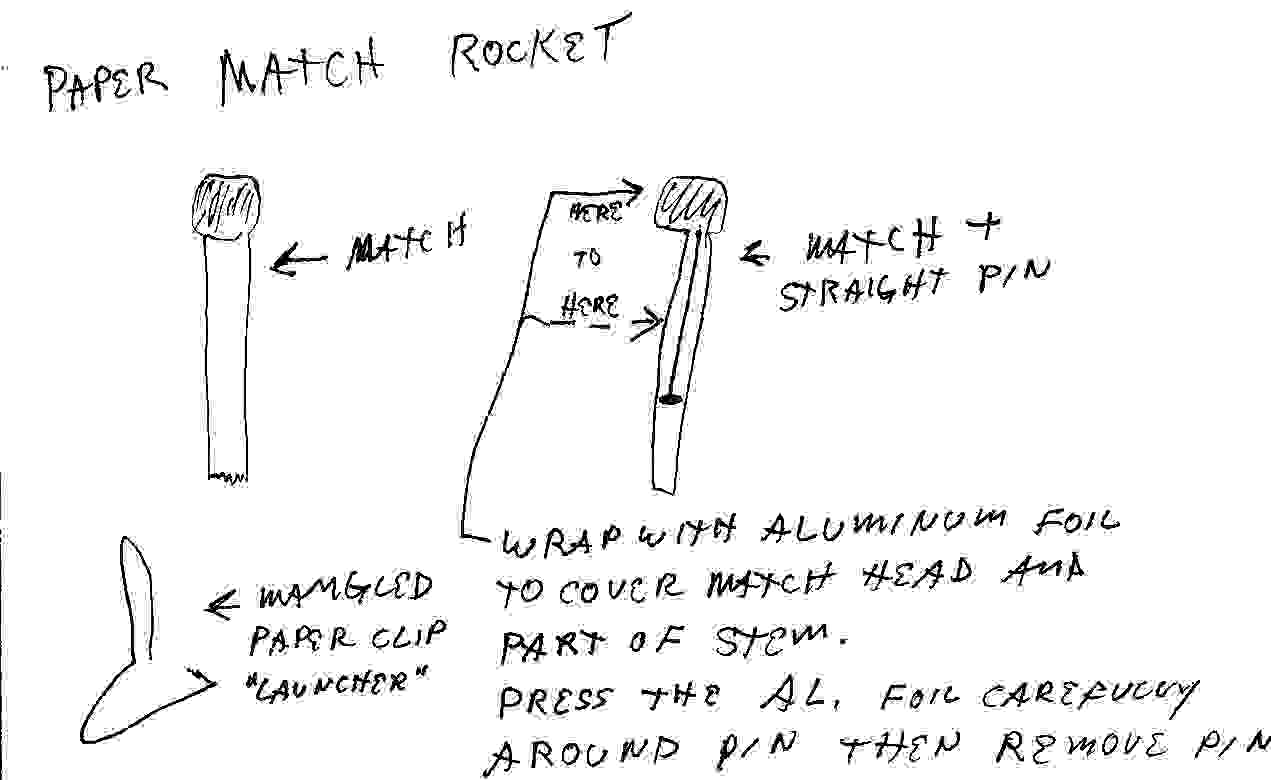 PAPER MATCH ROCKET
MATCH
HERE
TO
HERE
MATCH +
STRAIGHT PIN
MANGLED
PAPER CLIP
"LAUNCHER"
WRAP WITH ALUMINUM FOIL
TO COVER MATCH HEAD AND
PART OF STEM.
PRESS THE AL. FOIL CAREFULLY
AROUND PIN THEN REMOVE PIN